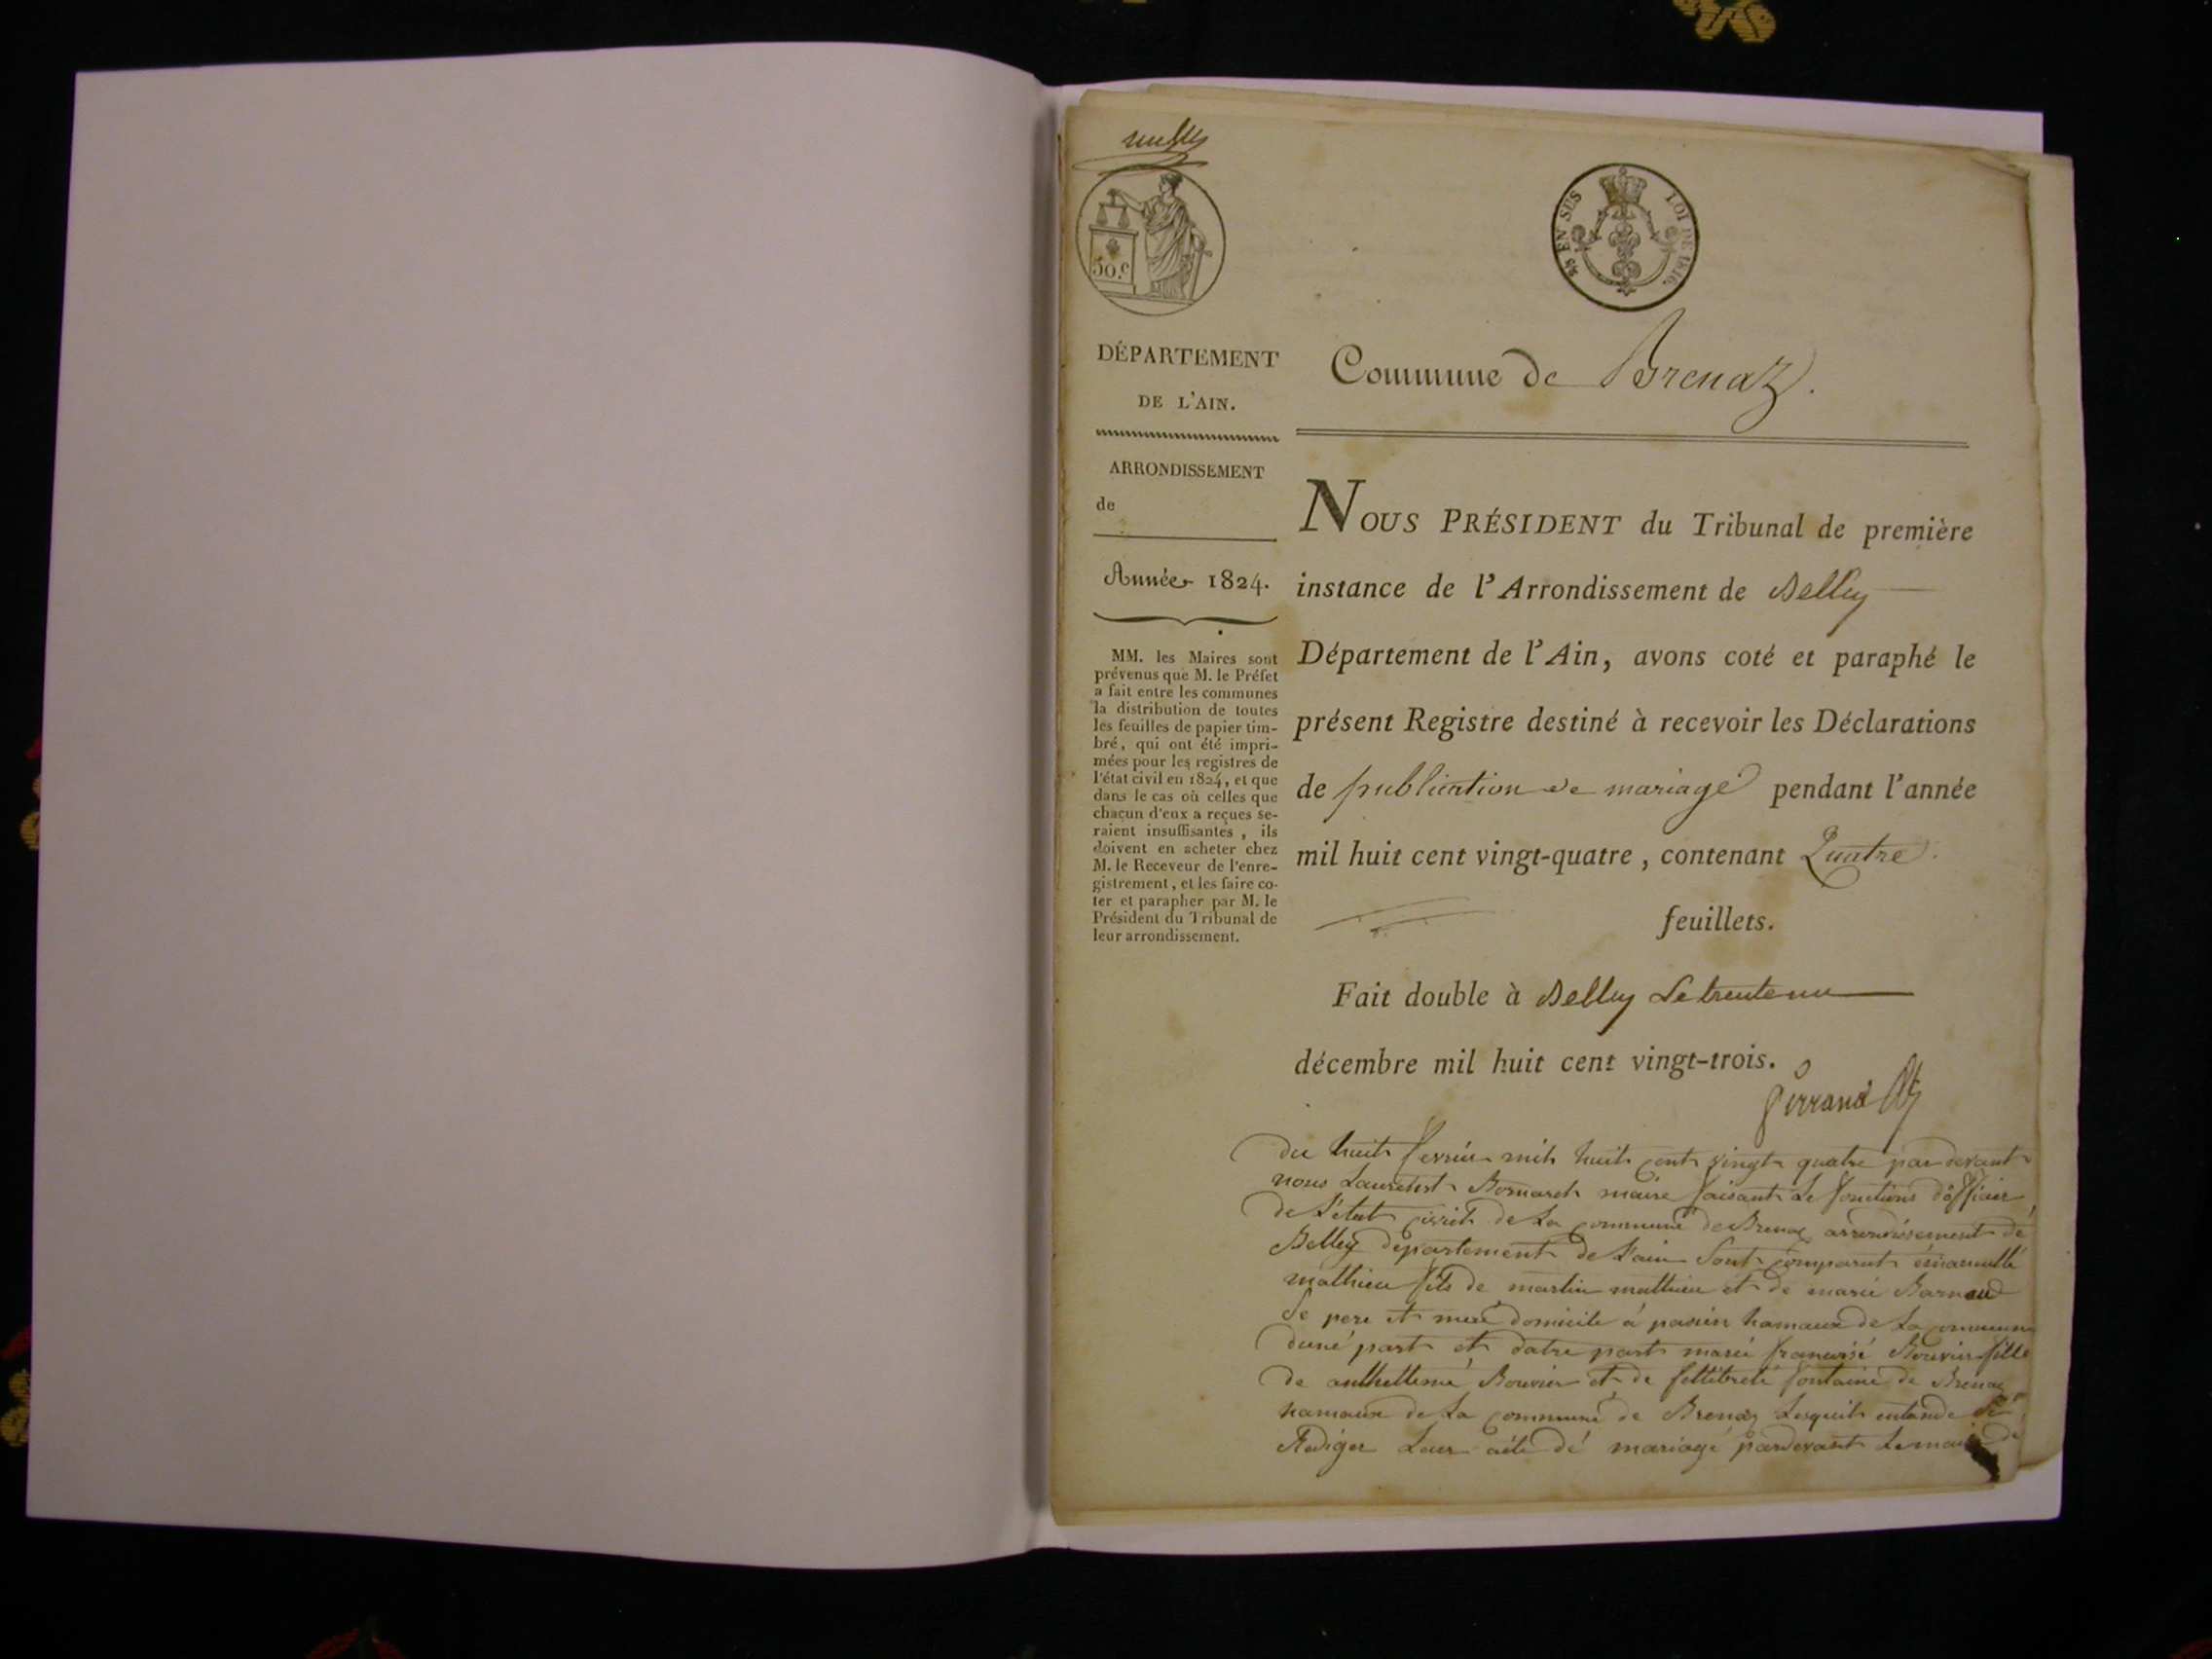 50.c
28 EN SUS LOI DE 1816.
DÉPARTEMENT
DE L'AIN.
ARRONDISSEMENT
de
Année 1824.
MM. les Maires sont
prévenus que M. le Préfet
a fait entre les communes
la distribution de toutes
les feuilles de papier tim-
bré, qui ont été impri-
mées pour les registres de
l'état civil en 1824, et que
dans le cas où celles que
chacun d'eux a reçues se-
raient insuffisantes, ils
doivent en acheter chez
M. le Receveur de l'enre-
gistrement, et les faire co-
ter et parapher par M. le
Président du Tribunal de
leur arrondissement.
Commune de Brenaz.
NOUS PRÉSIDENT du Tribunal de première
instance de l'Arrondissement de Belley
Département de l'Ain, avons coté et paraphé le
présent Registre destiné à recevoir les Déclarations
de publication de mariage pendant l'année
mil huit cent vingt-quatre, contenant Quatre
feuillets.
Fait double à Belley Le trente un
décembre mil huit cent vingt-trois.
du huit fevrier mil huit cent vingt quatre par devant
nous Laurent maire faisant Le fonctions d'officier
de L'état civil de La commune de Brenaz arrondisement de
Belley departement de L'ain Sont comparut
mathieu fils de martin mathieu et de marie Barnaud
Se pere et mere domicile á hamaux de La commune
duné part et datre part marie Bouvier fille
de Bouvier et de fontaine de Brenaz
hamaux de La commune de Brenaz Lesquels entande
Rediger Leur acte dé mariagé pardevant Le maire de